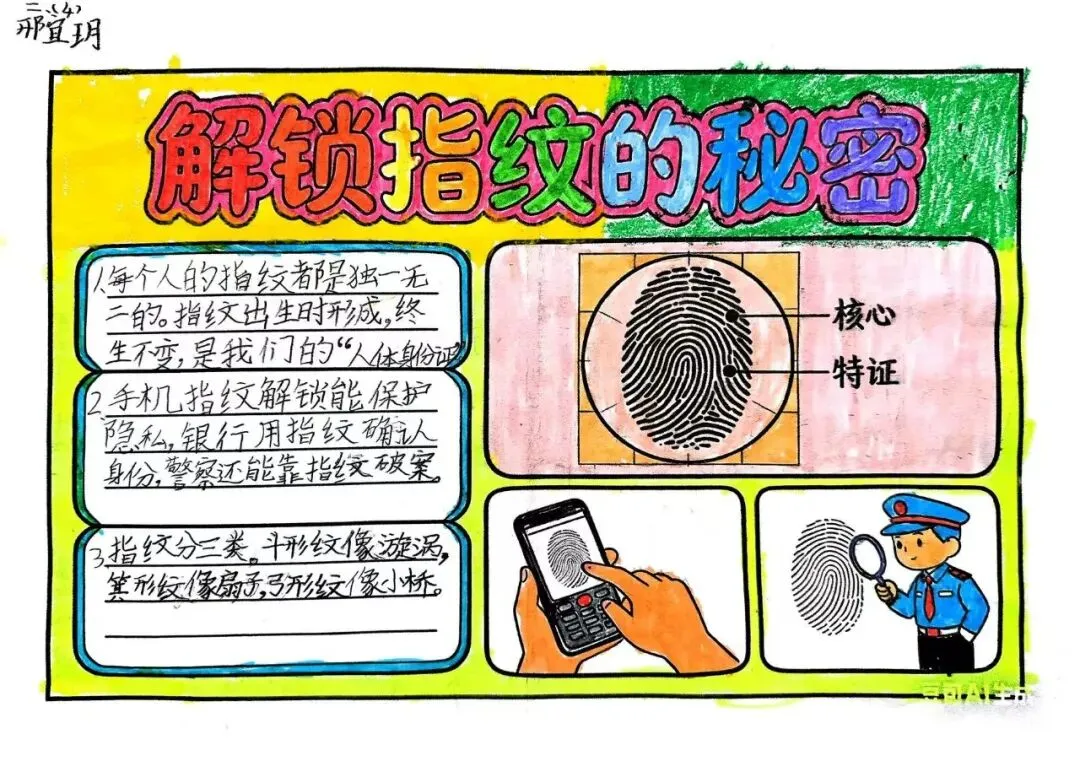 二(4)
邢宜玥
解锁指纹的秘密
1.每个人的指纹都是独一无
二的。指纹出生时形成,终
生不变,是我们的“人体身份证”
2.手机指纹解锁能保护
隐私,银行用指纹确认
身份,警察还能靠指纹破案。
3.指纹分三类。斗形纹像漩涡,
箕形纹像扇子,弓形纹像小桥。
核心
特证
豆可AI生成